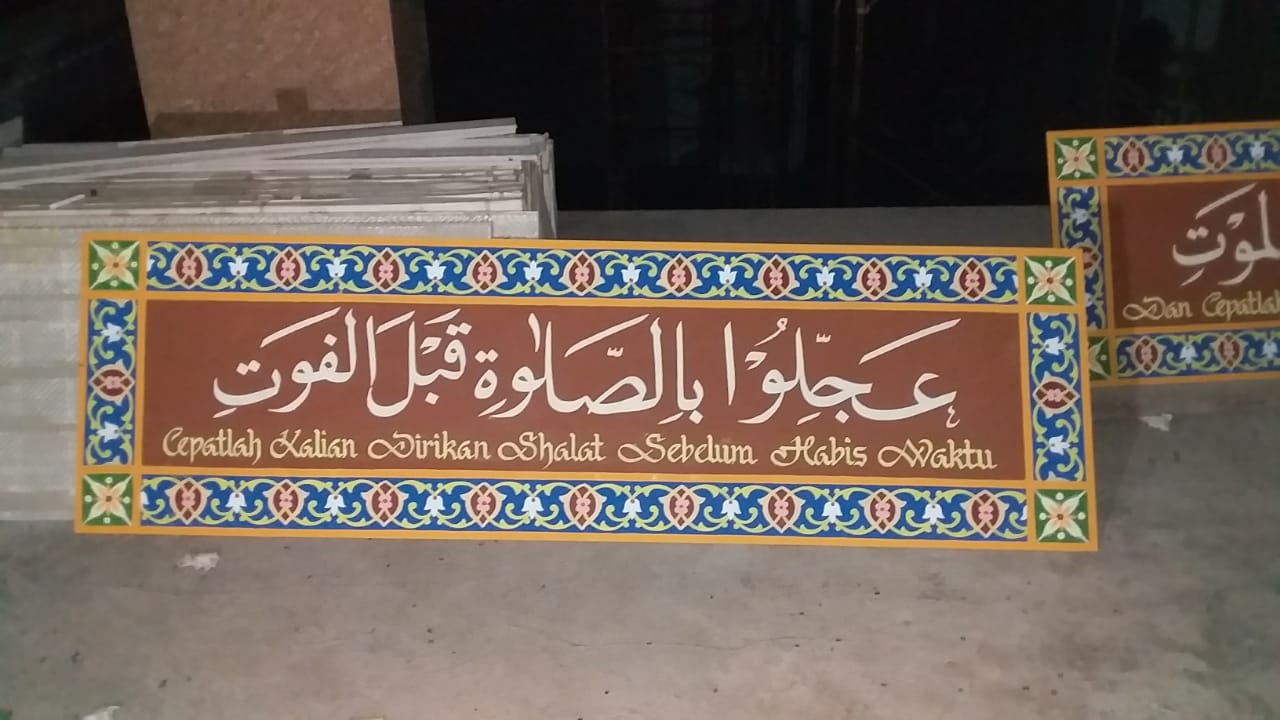 عَجِّلُوْا بِالصَّلٰوةِ قَبْلَ الفَوتِ
Cepatlah Kalian Dirikan Shalat Sebelum Habis Waktu
Dan Cepatlah